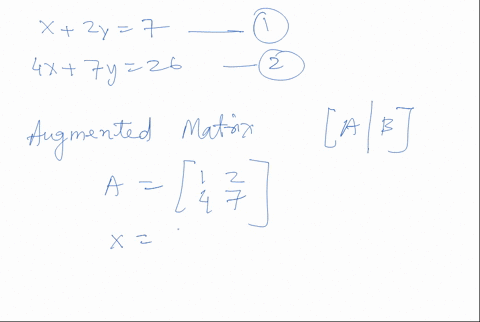 x + 2y = 7 —— 1
4x + 7y = 26 —— 2
Augmented Matrix [A|B]
A = [1 2
4 7]
x =